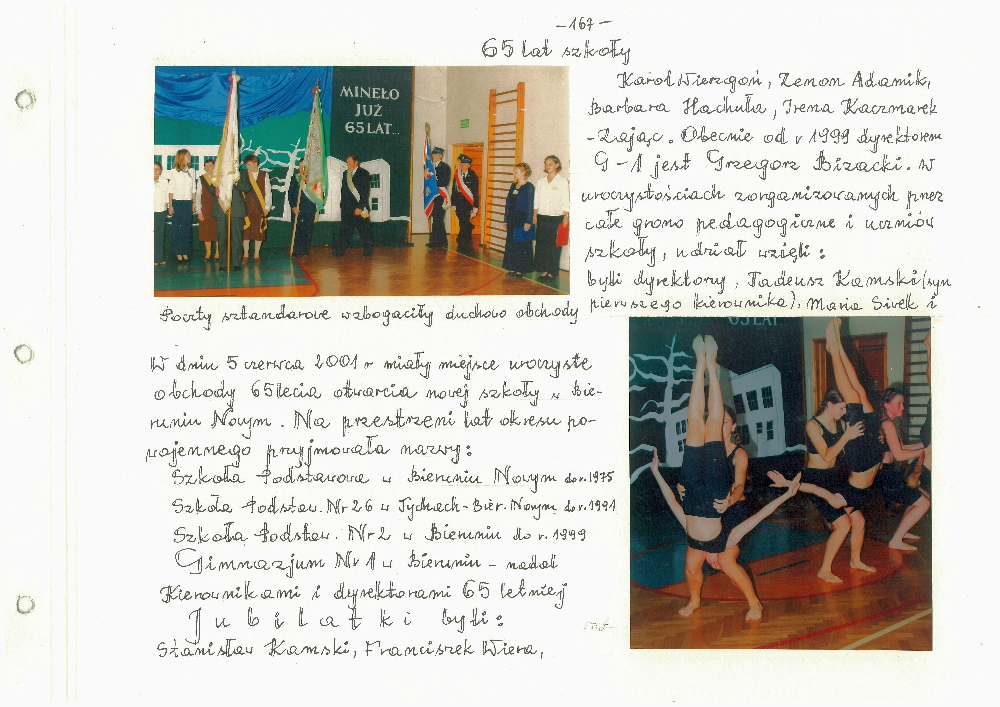 -167-
65 lat szkoły
MINEŁO
JUŻ
65 LAT...
Poczty sztandarowe wzbogaciły duchowo obchody
W dniu 5 czerwca 2001 r miały miejsce uroczyste
obchody 65lecia otwarcia nowej szkoły w Bie-
runiu Nowym. Na przestrzeni lat okresu po-
wojennego przyjmowała nazwy:
Szkoła Podstawowa w Bieruniu Nowym do r. 1975
Szkoła Podstaw. Nr 26 w Tychach-Bier. Nowym do r. 1991
Szkoła Podstaw. Nr 2 w Bieruniu do r. 1999
Gimnazjum Nr 1 w Bieruniu - nadal
Kierownikami i dyrektorami 65 letniej
Jubilatki byli:
Stanisław Kamski, Franciszek Wiera,
Karol Wierzgoń, Zenon Adamik,
Barbara Hachuła, Irena Kaczmarek
-Zając. Obecnie od r 1999 dyrektorem
G-1 jest Grzegorz Bizacki. W
uroczystościach zorganizowanych przez
całe grono pedagogiczne i uczniów
szkoły, udział wzięli:
byli dyrektorzy, Tadeusz Kamski (syn
pierwszego kierownika), Maria Sivek i
65 LAT